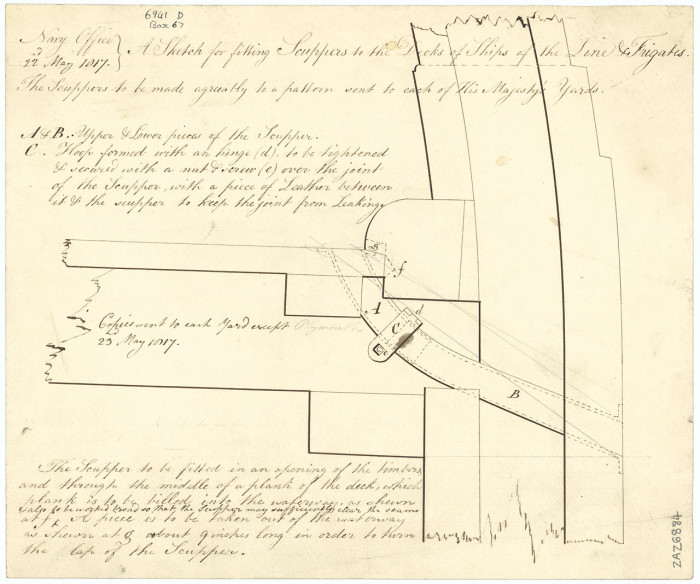 6941 D
Box 67
Navy Office
22 May 1817.
A Sketch for fitting Scuppers to the Decks of Ships of the Line & Frigates.
The Scuppers to be made agreeably to a pattern sent to each of His Majesty's Yards.
A & B. Upper & Lower pieces of the Scupper.
C. Hoop formed with an hinge (d), to be tightened
& secured with a nut & screw (e) over the joint
of the Scupper, with a piece of Leather between
it & the scupper to keep the joint from Leaking.
g
f
A
d
C
e
B
Copies sent to each Yard except Plymouth
23 May 1817.
The Scupper to be fitted in an opening of the timbers,
and through the middle of a plank of the deck, which
plank is to be billed into the waterway, as shewn
so that the Scupper may sufficiently clear the seams
at f. A piece is to be taken out of the waterway
as shewn at g about 9 inches long in order to turn
the lap of the Scupper.
ZAZ6884